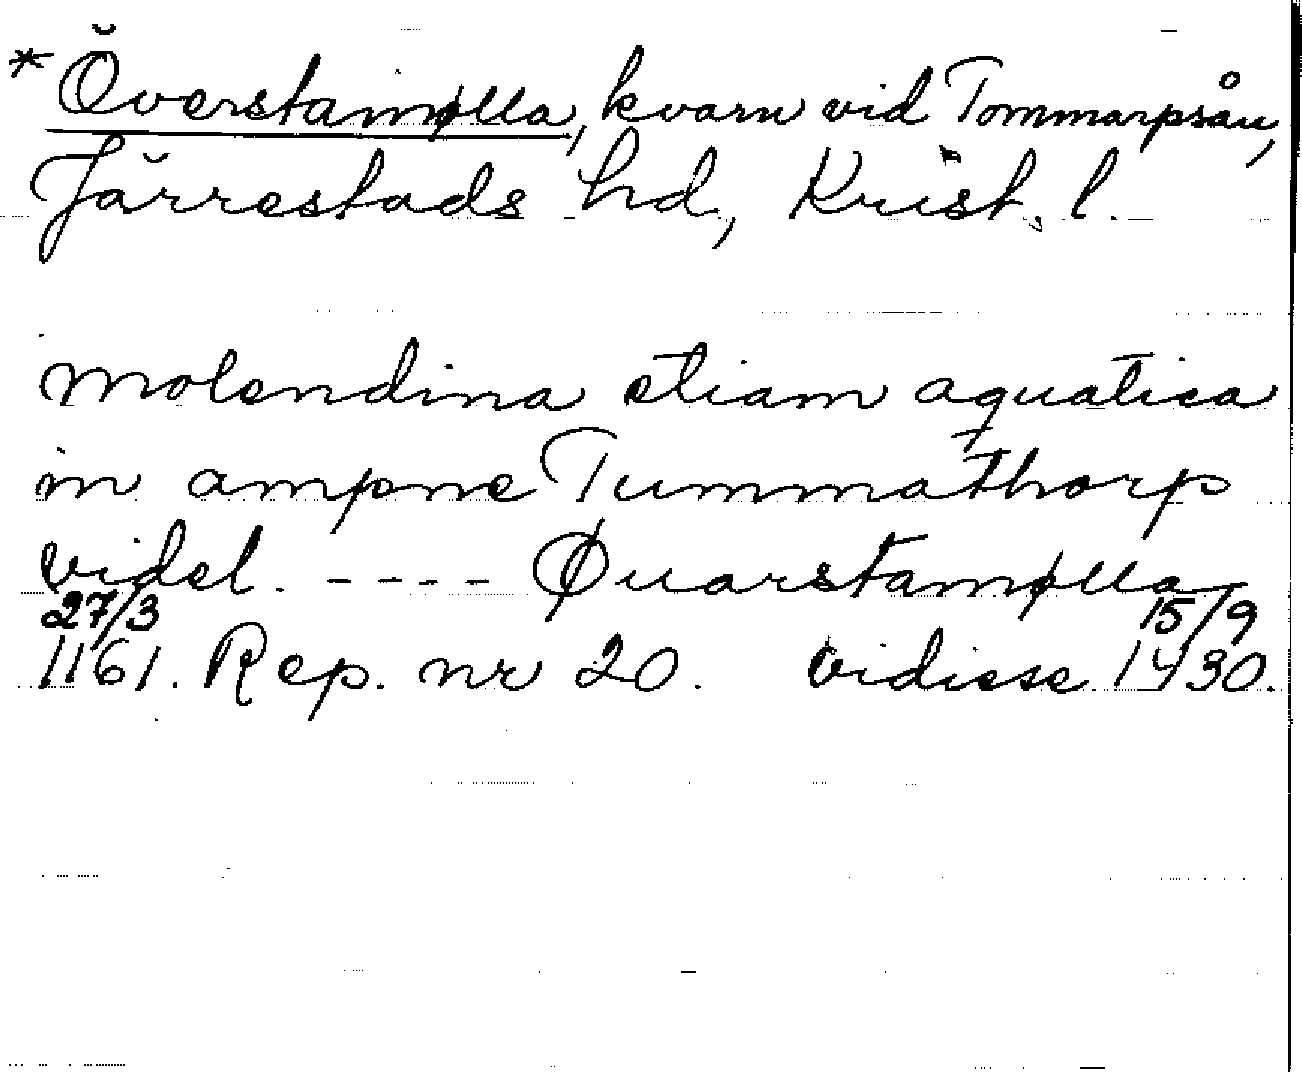 *Överstamølla, kvarn vid Tommarpsån,
Järrestads hd, Krist. l.
molendina etiam aquatica
in ampne Tummathorp
videl. ---- Øuarstamølla
27/3 15/9
1161. Rep. nr 20. vidisse 1430.